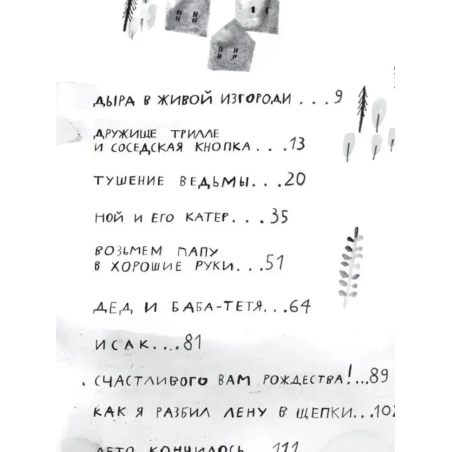 ДЫРА В ЖИВОЙ ИЗГОРОДИ . . . 9
ДРУЖИЩЕ ТРИЛЛЕ
И СОСЕДСКАЯ КНОПКА. . . 13
ТУШЕНИЕ ВЕДЬМЫ. . .20
НОЙ И ЕГО КАТЕР. . . 35
ВОЗЬМЕМ ПАПУ
В ХОРОШИЕ РУКИ. . .51
ДЕД И БАБА-ТЕТЯ. . .64
ИСАК. . . .81
СЧАСТЛИВОГО ВАМ РОЖДЕСТВА!. . .89
КАК Я РАЗБИЛ ЛЕНУ В ЩЕПКИ. . .102
ЛЕТО КОНЧИЛОСЬ. . .111